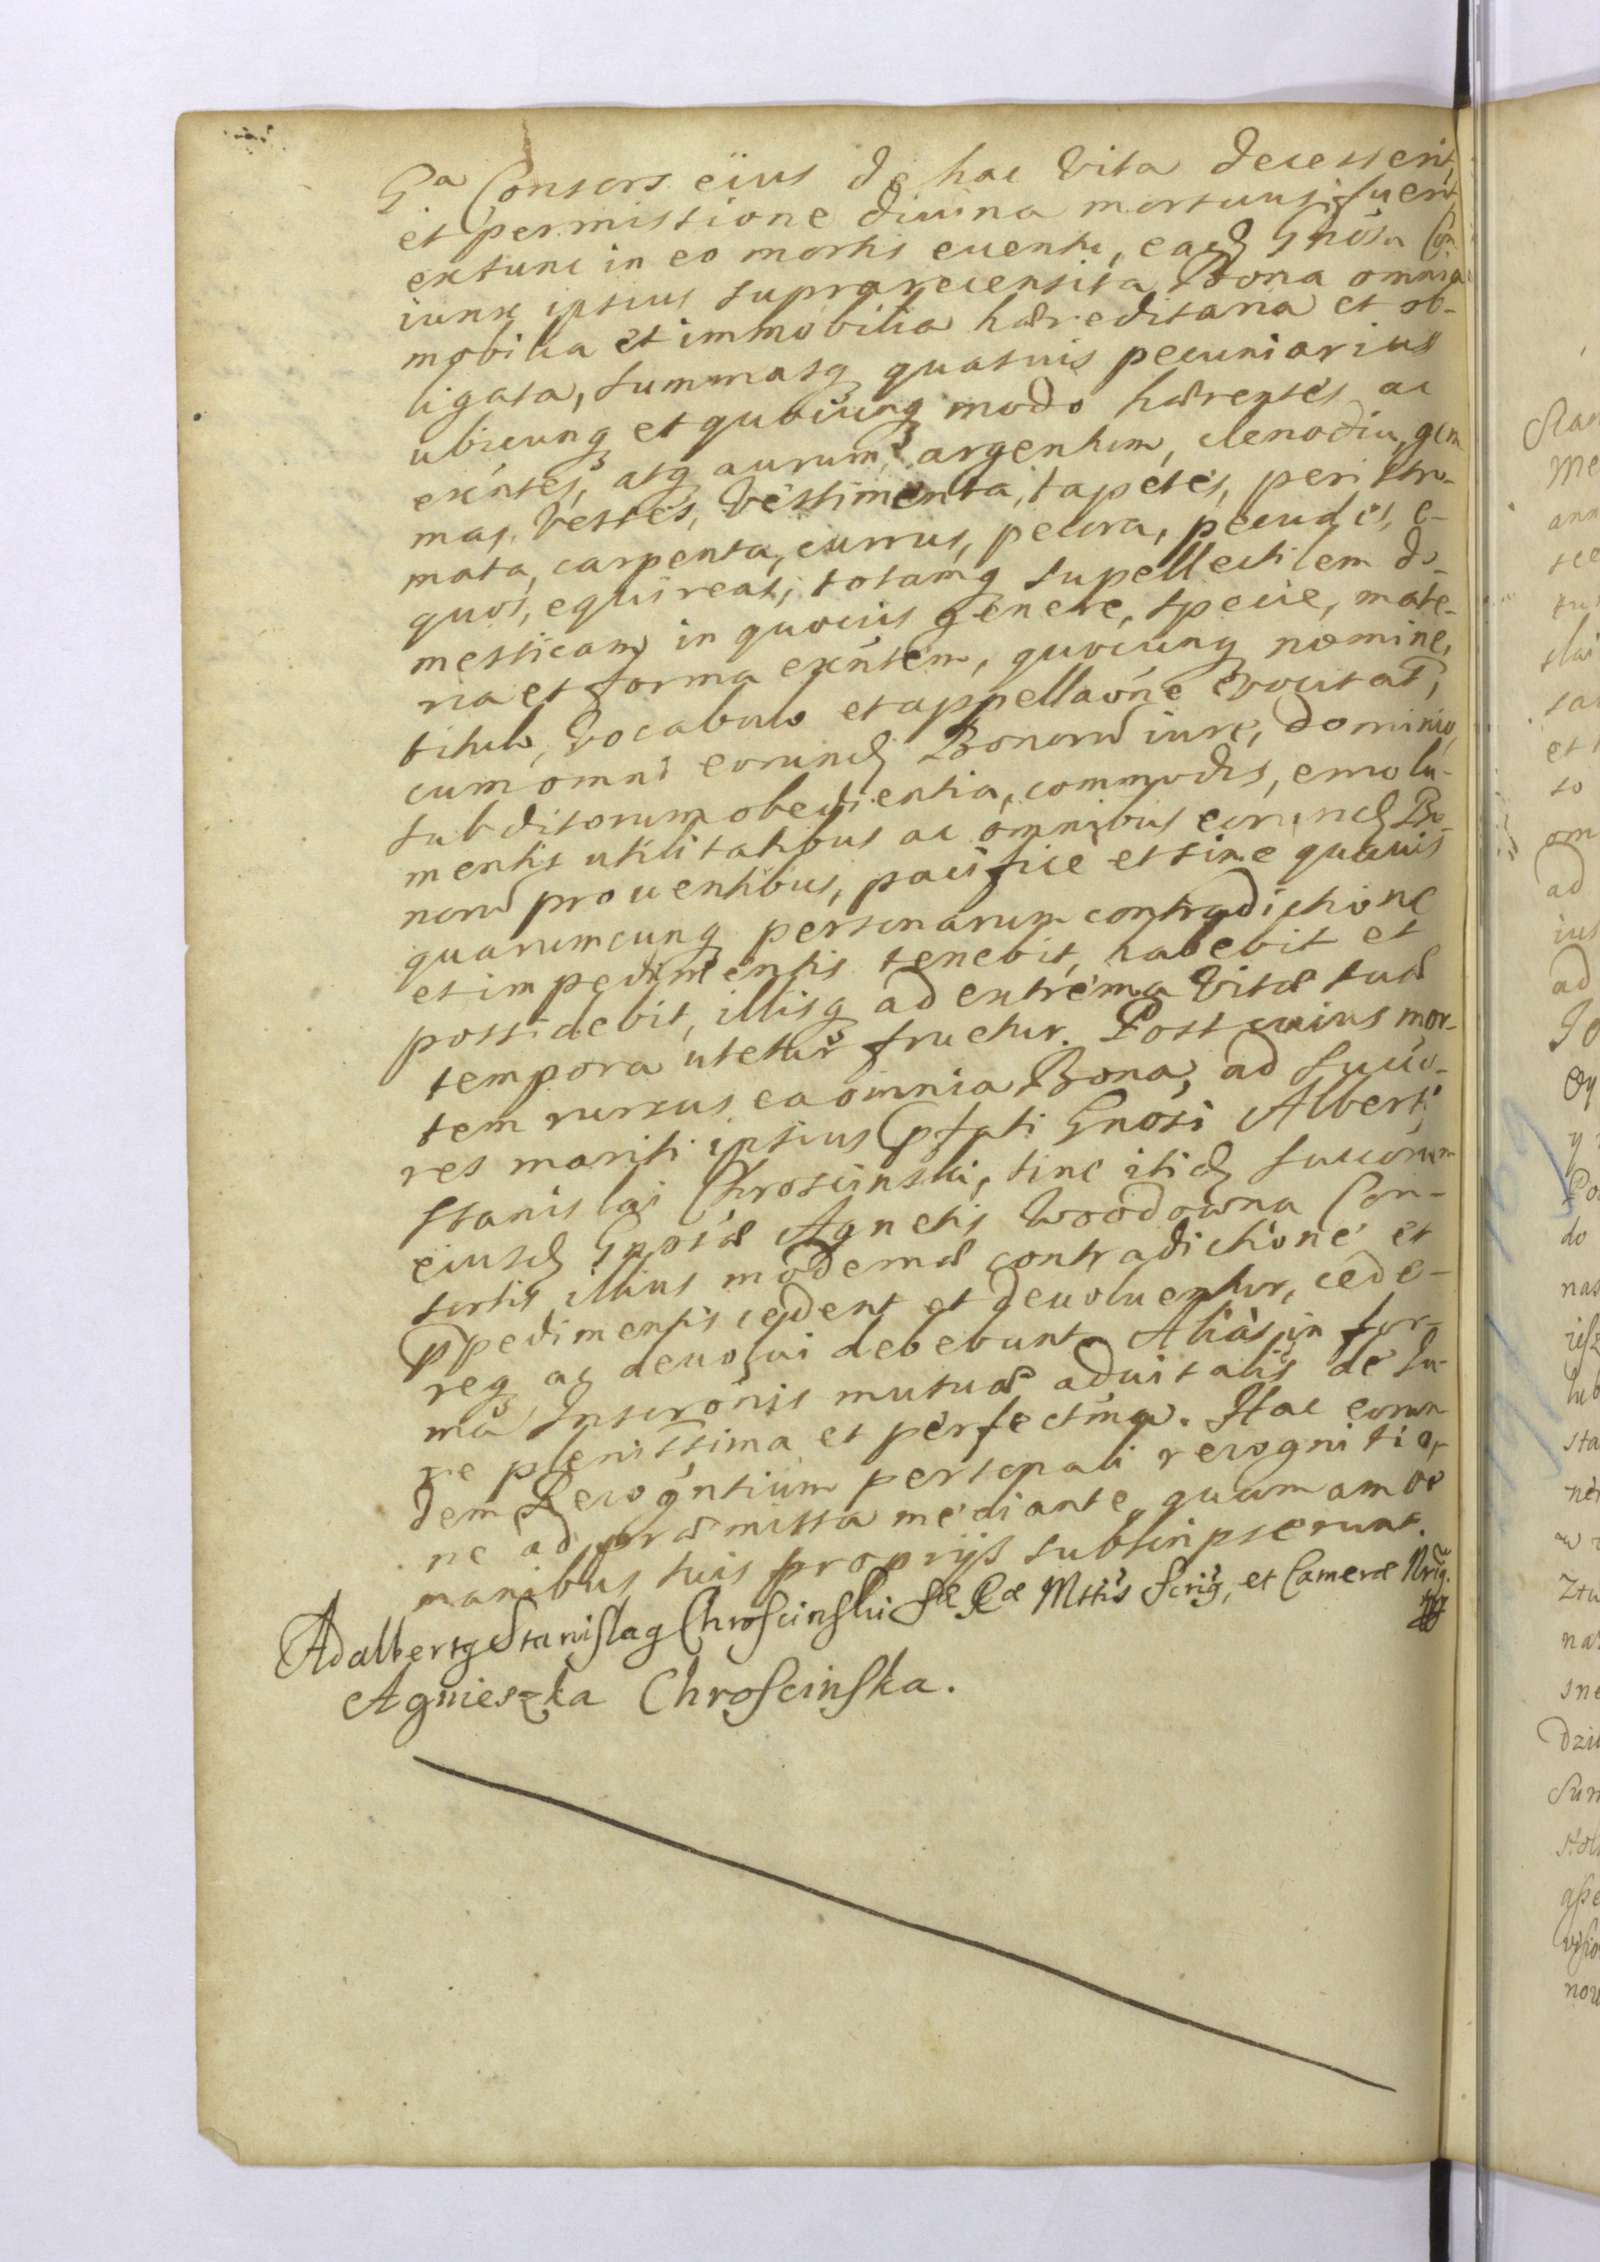 Gᵃ Consors eius de hac Vita decesserit,
et permissione diuina mortuus fuerit,
extunc in eo mortis euentu, eadꝫ Gnosa Con
iunx ipsius suprarecensita Bona omnia
mobilia et immobilia hæreditaria et ob-
ligata, summasqꝫ quasuis pecuniarias
ubicunqꝫ et quocunqꝫ modo hærentes ac
exńtes, atqꝫ aurum, argentum, clenodia, gem
mas, Vestes, Vestimenta, tapetes, peristro-
mata, carpenta, currus, pecora, pecudes, e-
quos, equireas, totamqꝫ supellectilem do-
mesticam in quouis genere, specie, mate-
ria et forma exńtem, quocunqꝫ nomine,
titulo, Vocabulo et appellaōne vocitat,
cum omni eorundꝫ Bonorū iure, dominio,
subditorum obedientia, commodis, emolu-
mentis utilitatibus ac omnibus eorundꝫ Bo-
norū prouentibus, pacifice et sine quauis
quarumcunqꝫ personarum contradictione
et impedimentis tenebit, habebit et
possidebit, illisqꝫ ad extrema Vitæ suæ
tempora utetur fruetur. Post cuius mor-
tem rursus ea omnia Bona, ad succō-
res mariti ipsius pfati Gnosi Alberti
Stanislai Chroscinski, sine itidꝫ succōrum
eiusdꝫ Gnosæ Agnetis Woodowna Con-
sortis illius modernæ contradictione et
ppedimentis cedent et deuoluentur, cede-
reqꝫ ac deuolui debebunt. Alias in for-
mā Inscrōnis mutuæ aduitalis de Iu-
re plenissima et perfectina. Hac eorun
dem Recogńtium personali recognitio-
ne ad præmissa mediante, quam ambæ
manibus suis proprijs subscripserunt.
Adalbertꝫ Stanislaꝫ Chroscinski Sæ Ræ Mttis Scrig, et Cameræ Nrig.
Agnieszka Chroscinska.